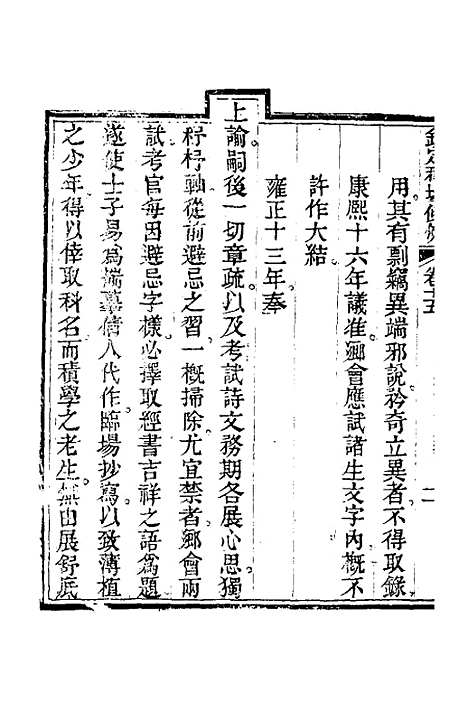 欽定科場條例 卷十五 二
用其有剽竊異端邪說矜奇立異者不得取錄
康熙十六年議准鄉會應試諸生文字內概不
許作大結
雍正十三年奉
上諭嗣後一切章疏以及考試詩文務期各展心思獨
杼軸從前避忌之習一概掃除尤宜禁者鄉會兩
試考官每因避忌字樣必擇取經書吉祥之語為題
遂使士子易為揣摹倩人代作臨場抄寫以致薄植
之少年得以倖取科名而積學之老生無由展舒底